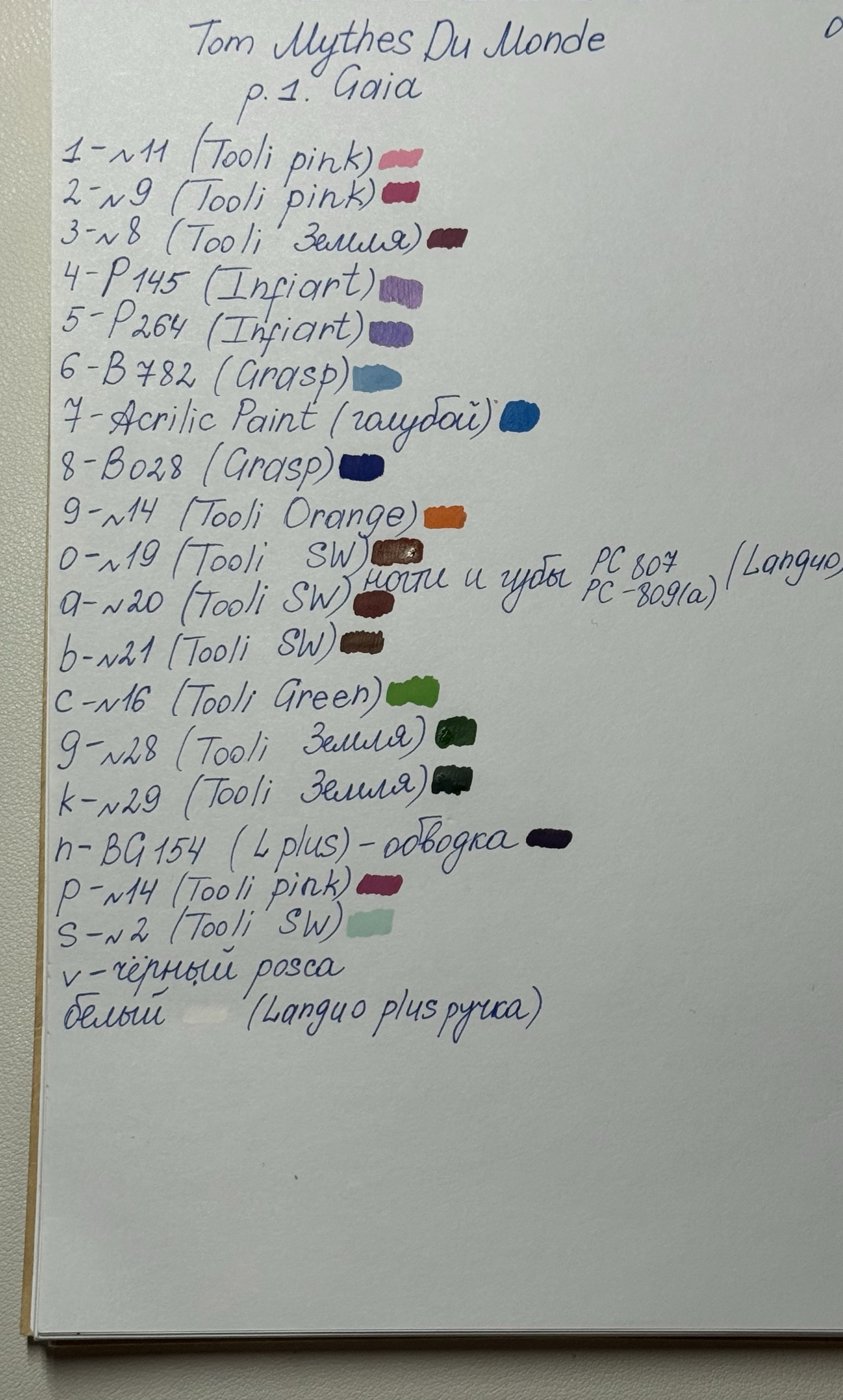 Tom Mythes Du Monde
p. 1. Gaia
1-N11 (Tooli pink)
2-N9 (Tooli pink)
3-N8 (Tooli Земля)
4-P145 (Infiart)
5-P264 (Infiart)
6-B782 (Grasp)
7-Acrilic Paint (голубой)
8-B028 (Grasp)
9-N14 (Tooli Orange)
0-N19 (Tooli SW)
ногти и губы PC 807 (Languo)
PC-809(a)
a-N20 (Tooli SW)
b-N21 (Tooli SW)
c-N16 (Tooli Green)
g-N28 (Tooli Земля)
k-N29 (Tooli Земля)
n-BG154 (L plus)-обводка
p-N14 (Tooli pink)
s-N2 (Tooli SW)
v-чёрный posca
белый (Languo plus ручка)